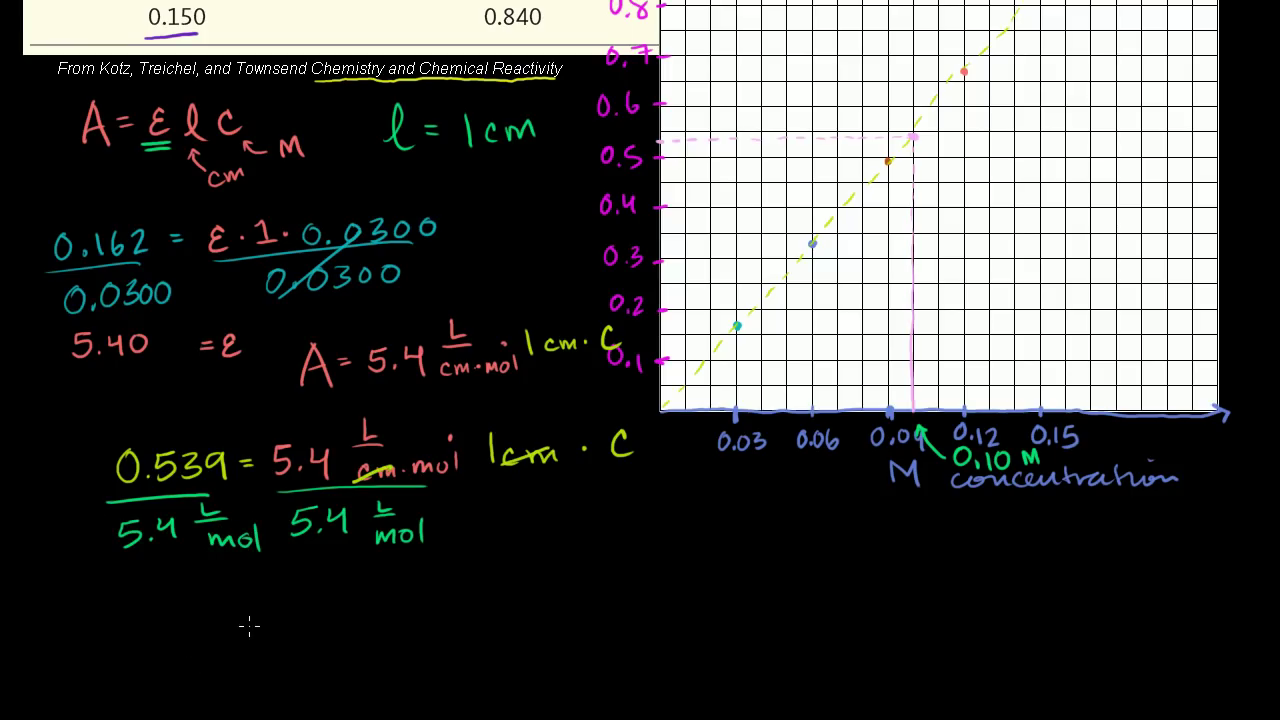 0.150 0.840
From Kotz, Treichel, and Townsend Chemistry and Chemical Reactivity
A = ε l c
M
cm
l = 1 cm
0.162 = ε · 1 · 0.0300
0.0300 0.0300
5.40 = ε
A = 5.4 L/cm·mol 1 cm · C
0.539 = 5.4 L/cm·mol 1 cm · C
5.4 L/mol 5.4 L/mol
0.8
0.7
0.6
0.5
0.4
0.3
0.2
0.1
0.03 0.06 0.09 0.12 0.15
0.10 M
M concentration